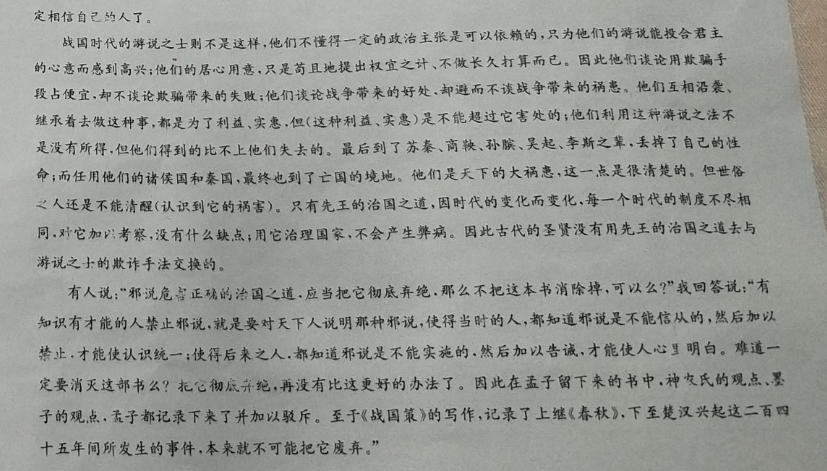 定相信自己的人了。
战国时代的游说之士则不是这样,他们不懂得一定的政治主张是可以依赖的,只为他们的游说能投合君主
的心意而感到高兴;他们的居心用意,只是苟且地提出权宜之计、不做长久打算而已。因此他们谈论用欺骗手
段占便宜,却不谈论欺骗带来的失败;他们谈论战争带来的好处,却避而不谈战争带来的祸患。他们互相沿袭、
继承着去做这种事,都是为了利益、实惠,但(这种利益、实惠)是不能超过它害处的;他们利用这种游说之法不
是没有所得,但他们得到的比不上他们失去的。最后到了苏秦、商鞅、孙膑、吴起、李斯之辈,丢掉了自己的性
命;而任用他们的诸侯国和秦国,最终也到了亡国的境地。他们是天下的大祸患,这一点是很清楚的。但世俗
之人还是不能清醒(认识到它的祸害)。只有先王的治国之道,因时代的变化而变化,每一个时代的制度不尽相
同,对它加以考察,没有什么缺点;用它治理国家,不会产生弊病。因此古代的圣贤没有用先王的治国之道去与
游说之士的欺诈手法交换的。
有人说:“邪说危害正确的治国之道,应当把它彻底弃绝,那么不把这本书消除掉,可以么?”我回答说:“有
知识有才能的人禁止邪说,就是要对天下人说明那种邪说,使得当时的人,都知道邪说是不能信从的,然后加以
禁止,才能使认识统一;使得后来之人,都知道邪说是不能实施的,然后加以告诫,才能使人心里明白。难道一
定要消灭这部书么?把它彻底弃绝,再没有比这更好的办法了。因此在孟子留下来的书中,神农氏的观点、墨
子的观点,孟子都记录下来了并加以驳斥。至于《战国策》的写作,记录了上继《春秋》,下至楚汉兴起这二百四
十五年间所发生的事件,本来就不可能把它废弃。”